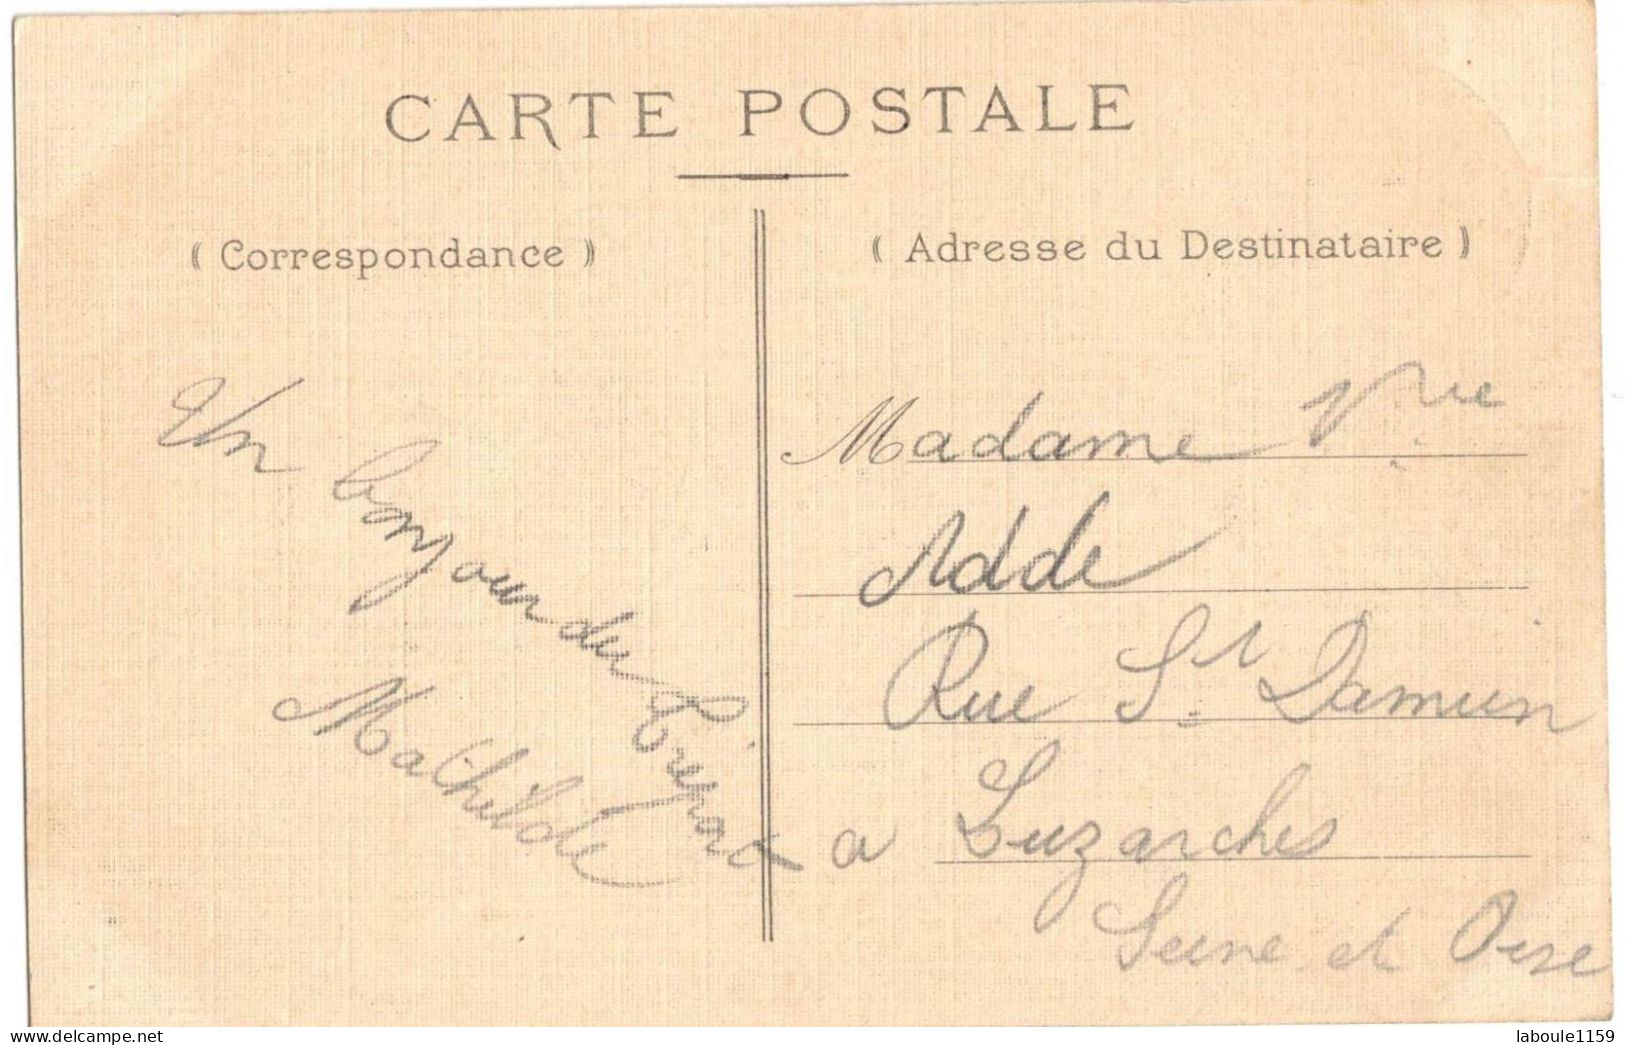 CARTE POSTALE
( Correspondance )
( Adresse du Destinataire )
Un bonjour du Tréport
Mathilde
Madame Vve
Adde
Rue St Damien
a Luzarches
Seine et Oise
www.delcampe.net
laboule1159